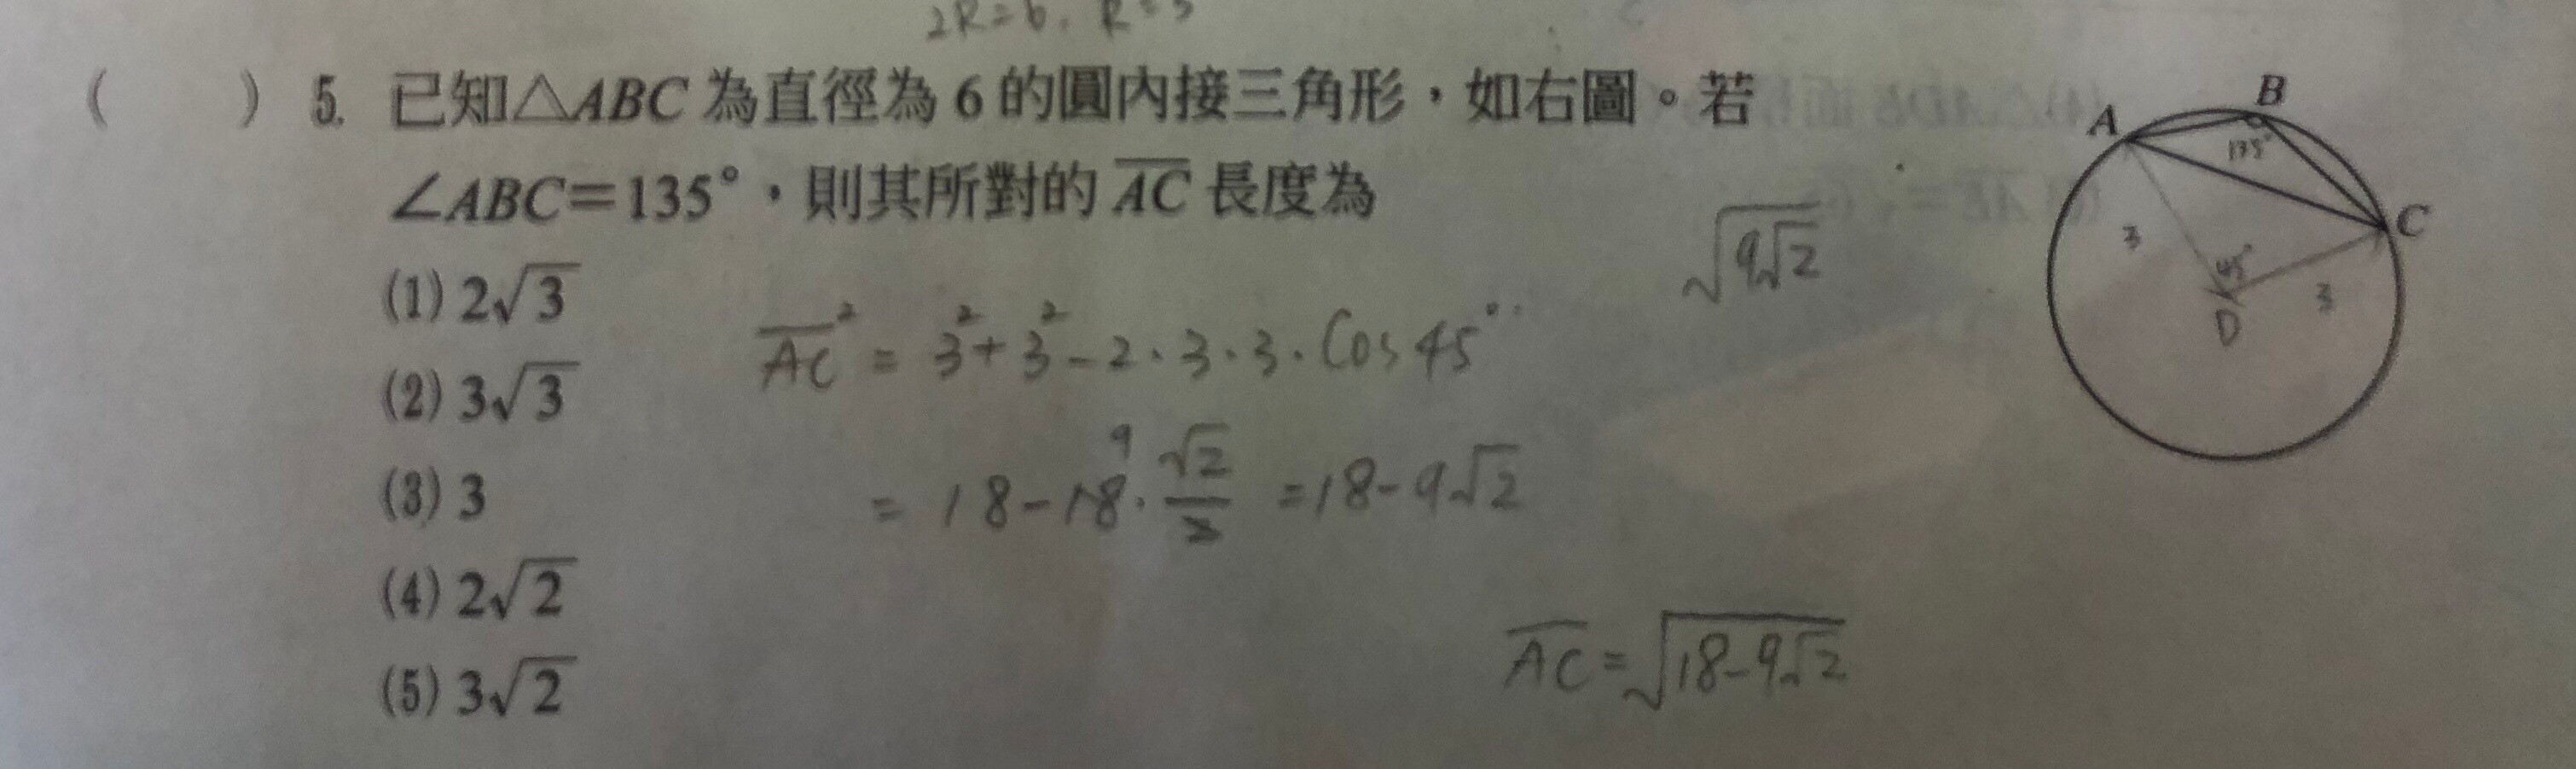 2R=6, R=3
( ) 5. 已知△ABC 為直徑為 6 的圓內接三角形，如右圖。若
∠ABC=135°，則其所對的 AC 長度為
(1) 2√3
(2) 3√3
(3) 3
(4) 2√2
(5) 3√2
AC² = 3² + 3² - 2 · 3 · 3 · Cos 45°
= 18 - 18 · 9 √2/2 = 18 - 9√2
√9√2
AC = √18-9√2
A
B
135°
C
3
45°
3
D